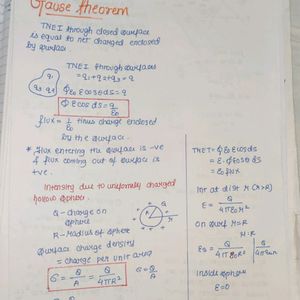 Gauss theorem
TNEI through closed surface
is equal to net charged enclosed
by surface
TNEI through surfaces
= q1 + q2 + q3 = q
q1
q2 q3
∮ε0 E cosθ ds = q
∮ E cos ds = q/ε0
flux = 1/ε0 times charge enclosed
by the surface.
* flux entering the surface is -ve
& flux coming out of surface is
+ve.
Intensity due to uniformly charged
hollow sphere
Q - Charge on
sphere
R - Radius of sphere
surface charge density
= charge per unit area
σ = Q/A = Q/4πR²
σ = Q/A
TNEI = ∮ε0 E cosθ ds
= ε0 ∮E cosθ ds
= ε0 flux
Int at dist r (r>R)
E = Q/4πε0r²
on surf r=R
inside sphere
E=0